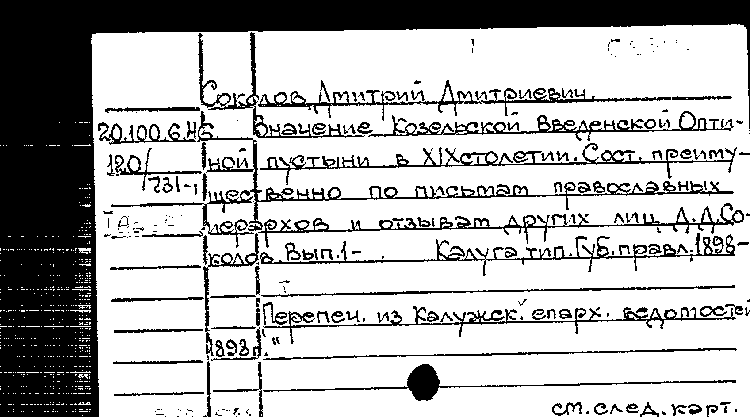 Соколов, Дмитрий Дмитриевич.
20.100.6.46 Значение Козельской Введенской Опти-
120/231-1 ной пустыни в XIX столетии. Сост. преиму-
щественно по письмам православных
иерархов и отзывам других лиц Д.Д.Со-
колов. Вып.1- . Калуга, тип. Губ. правл., 1898-
I
Перепеч. из Калужск. епарх. ведомостей
1898 г. "
см. след. карт.